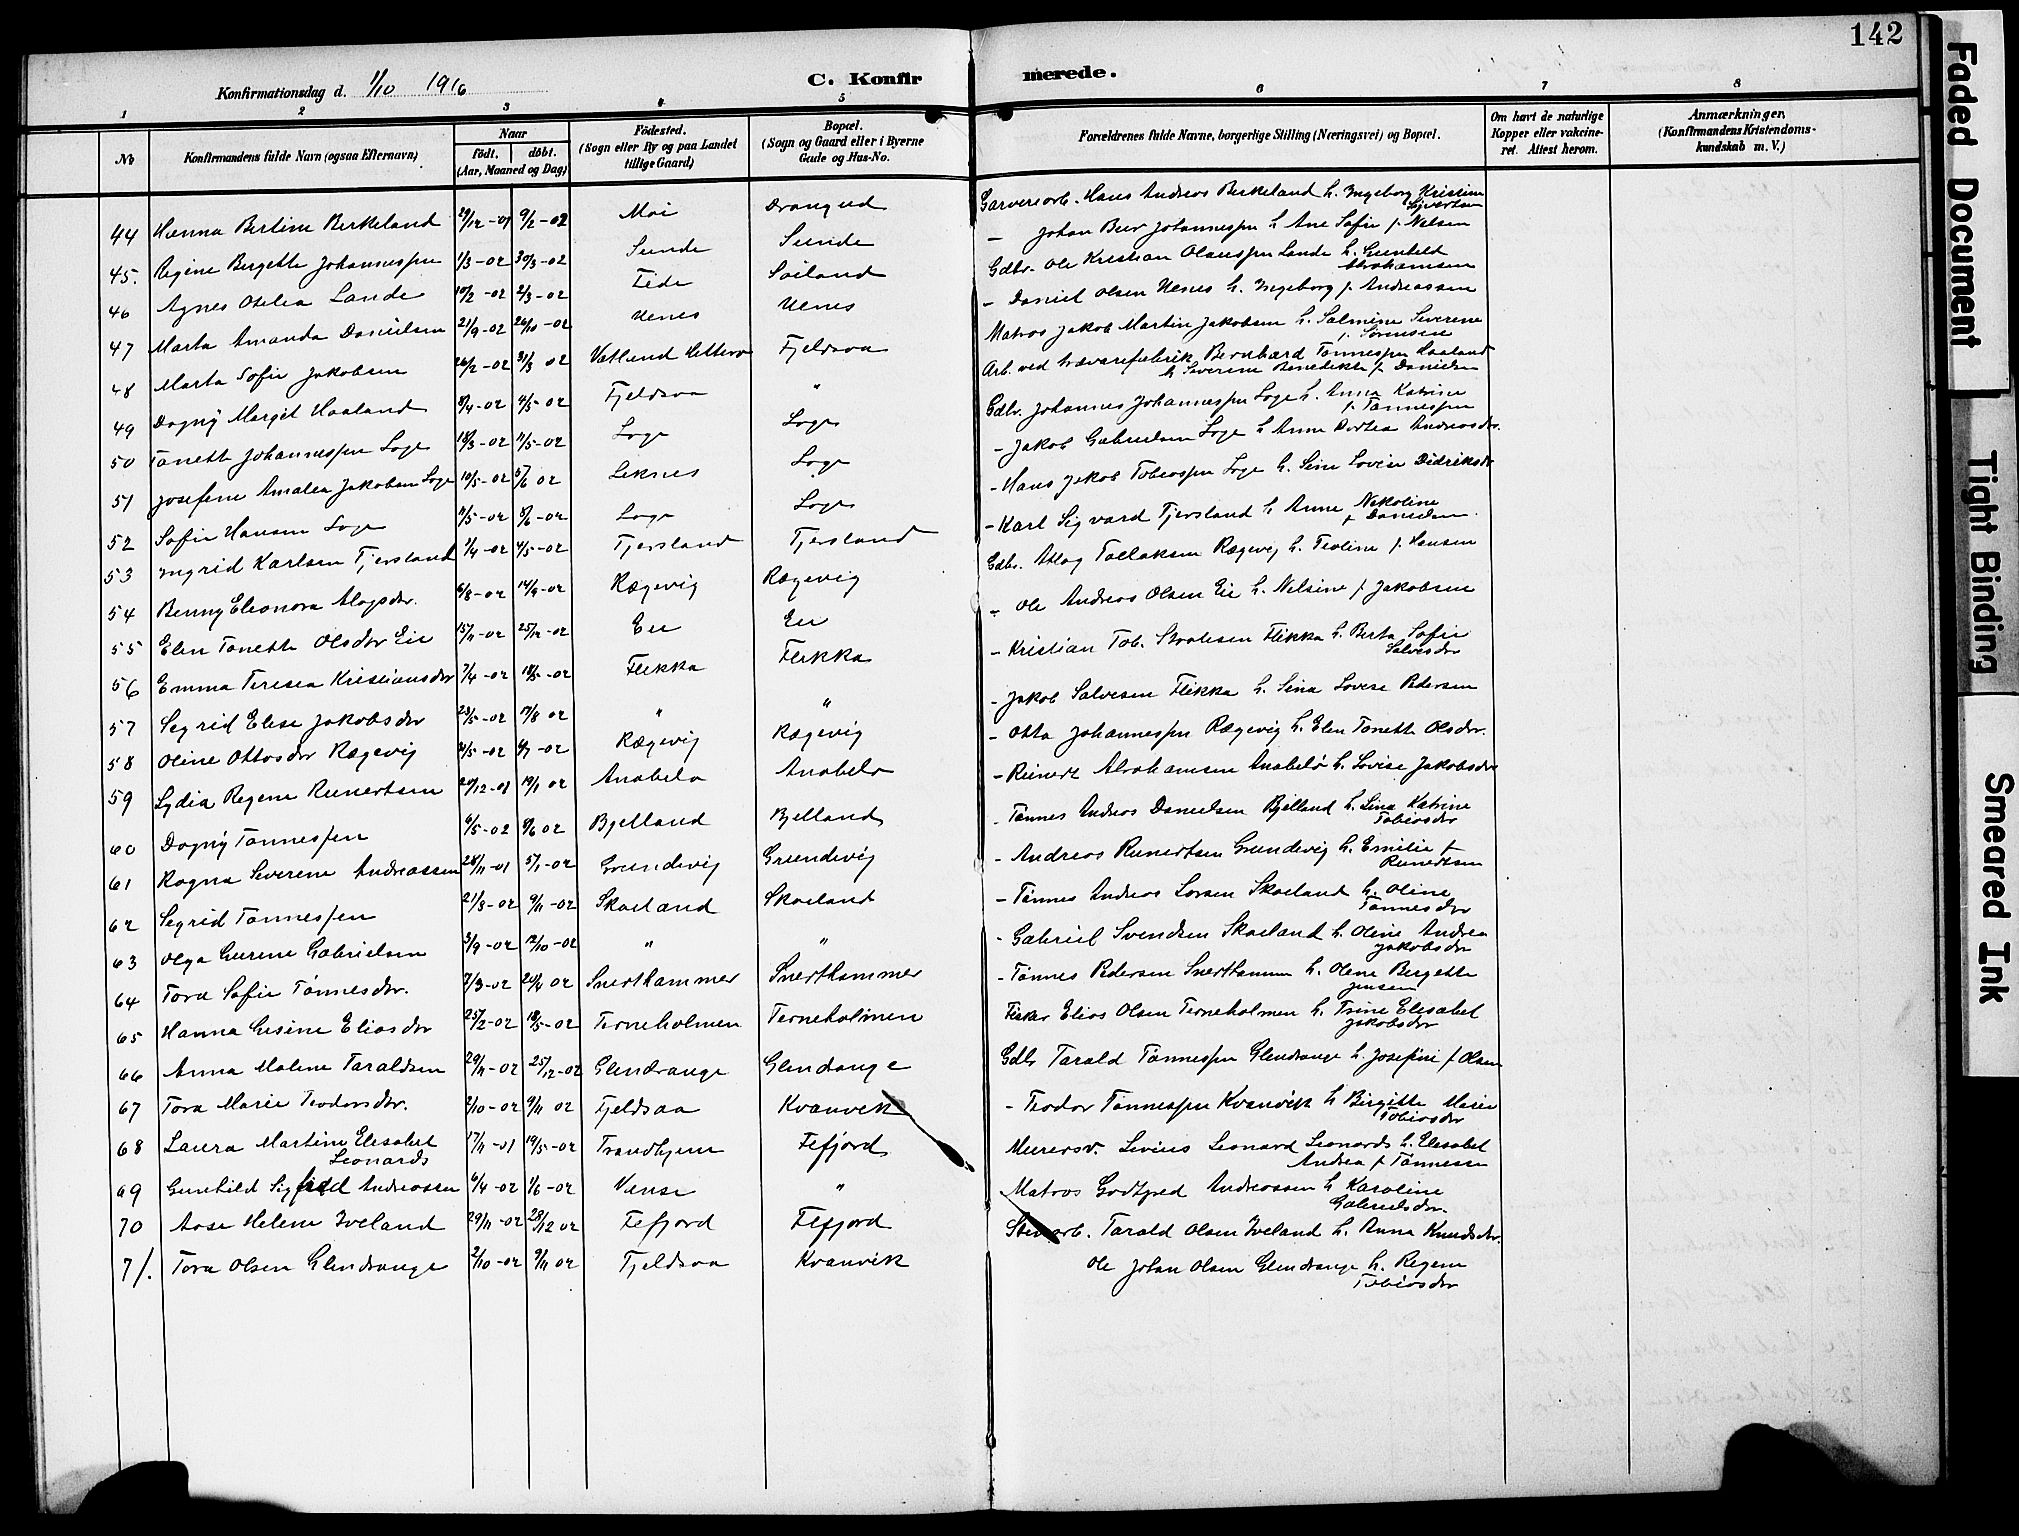 142
Konfirmationsdag d. 1/10 1916
C. Konfirmerede.
1 2 3 4 5 6 7 8
No
Konfirmandens fulde Navn (ogsaa Efternavn)
Naar
födt. döbt.
(Aar, Maaned og Dag)
Födested.
(Sogn eller By og paa Landet
tillige Gaard)
Bopæl.
(Sogn og Gaard eller i Byerne
Gade og Hus-No.
Forældrenes fulde Navne, borgerlige Stilling (Næringsvei) og Bopæl.
Om havt de naturlige
Kopper eller vakcine-
ret. Attest herom.
Anmærkninger,
(Konfirmandens Kristendoms-
kundskab m. V.)
44 Hanna Bertine Berkeland 29/12-01 9/2-02 Moi Drangud Garveriarb. Hans Andreas Berkeland h. Ingeborg Kristine
Sivertsen
45. Regine Bergette Johannessen 1/3-02 30/3-02 Sunde Sunde - Johan Beer Johannessen h Ane Sofie f. Nelsen
46 Agnes Otelia Lande 10/2-02 2/3-02 Fede Soiland Gdbr. Ole Kristian Olaussen Lande h. Gunhild
Abrahamsen
47 Marta Amanda Danielsen 21/9-02 26/10-02 Uenes Uenes - Daniel Olsen Uenes h. Ingeborg f. Andreassen
48 Marta Sofie Jakobsen 26/2-02 31/3 02 Vatland Hitterø Fjeldsaa Matros Jakob Martin Jakobsen h. Salmine Severene
f. Sørensen
49 Dagny Margit Haaland 8/4-02 4/5-02 Fjeldsaa " Arb. ved trævarefabrik Bernhard Tønnessen Haaland
h Severine Benedikte f. Danielsen
50 Tonette Johannessen Loge 18/3-02 11/5-02 Loge Loge Gdbr. Johannes Johannessen Loge h. Anna Katrine
f. Tønnessen
51 Josefine Amalia Jakobsen Loge 10/5-02 5/6 02 Leknes Loge - Jakob Gabrielsen Loge h Anne Dortea Andreasdr.
52 Sofie Hansen Loge 11/5-02 8/6-02 Loge Loge - Hans Jakob Tobiassen Loge h. Sine Lovise Didriksdr
53 Ingrid Karlsen Tjersland 1/4-02 4/5-02 Tjersland Tjersland - Karl Sigvard Tjersland h Anne Nikoline
f Danielsen
54 Benny Eleonora Alagsdr. 6/8-02 14/9-02 Rægevig Rægevig Gdbr. Atlag Tollaksen Rægevig h. Teoline f. Hansen
55 Elen Tonette Olsdr Eie 15/11-02 25/12-02 Eie Eie - Ole Andreas Olsen Eie h. Nilsine f. Jakobsen
56 Emma Teresia Kristiansdr 7/4-02 18/5-02 Flikka Flikka - Kristian Tob. Salvesen Flikka h. Berta Sofie
Salvesdr
57 Sigrid Elise Jakobsdr 23/5-02 17/8 02 " " - Jakob Salvesen Flikka h. Sina Lovise Pedersen
58 Oline Ottosdr Rægevig 21/5-02 6/7-02 Rægevig Rægevig - Otto Johannessen Rægevig h. Elen Tonette Olsdr.
59 Lydia Regine Reinertsen 20/12-01 19/1 02 Anabelø Anabelø - Reinert Abrahamsen Anabelø h. Lovise Jakobsdr
60 Dagny Tønnessen 6/5-02 9/6 02 Bjelland Bjelland - Tønnes Andreas Danielsen Bjelland h. Lina Katrine
Tobiasdr
61 Ragna Severine Andreassen 28/11-01 5/1-02 Grundevig Grundevig - Andreas Reinertsen Grundevig h. Emilie f
Reinertsen
62 Sigrid Tønnessen 21/8-02 9/11-02 Skoeland Skoeland - Tønnes Andreas Larsen Skoeland h. Oline
Tønnesdr
63 Olga Gurine Gabrielsen 3/9-02 12/10-02 " " - Gabriel Svendsen Skoeland h. Oline Andrea
Jakobsdr
64 Tora Sofie Tønnesdr. 7/3-02 20/4 02 Snerthammer Snerthammer - Tønnes Pedersen Snerthammer h. Olene Bergette
Jensen
65 Hanna Gusine Eliasdr 25/2-02 18/5-02 Terneholmen Terneholmen Fisker Elias Olsen Terneholmen h. Trine Elisabet
Jakobsdr
66 Anna Malene Taraldsen 29/11-02 25/12-02 Glendrange Glendrange Gdbr Tarald Tønnessen Glendrange h. Josefine f Olsen
67 Tora Marie Teodorsdr. 2/10-02 9/11 02 Fjeldsaa Kvanvik - Teodor Tønnessen Kvanvik h Birgitte Marie
Tobiasdr
68 Laura Martine Elisabet 17/11-01 19/5-02 Trondhjem Fefjord Murersv. Sevius Leonard Leonards h. Elisabet
Leonards Andrea f Tønnesen
69 Gunhild Sigfrid Andreassen 6/4-02 1/6-02 Vanse " Matros Godtfred Andreassen h Karoline
Gabrielsdr.
70 Aase Helene Iveland 29/11-02 28/12 02 Fefjord Fefjord Stenarb. Tarald Olsen Iveland h. Anna Knudsdr.
71. Tora Olsen Glendrange 2/10-02 9/11 02 Fjeldsaa Kvanvik Ole Johan Olsen Glendrange h. Regine
Tobiasdr
Faded Document
Tight Binding
Smeared Ink